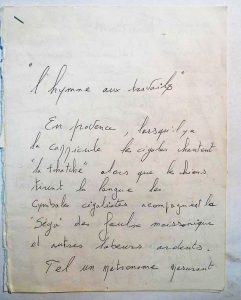 "l'hymne aux travails"
En provence, lorsqu'il y a
la canicule les cigales chantent
"la
" alors que les chiens
tirent la langue les
cymbale cigalistes acompagnent le
"Séga" des faulx moissonique
et autres labeurs ardents.
Tel un métronome mesurant